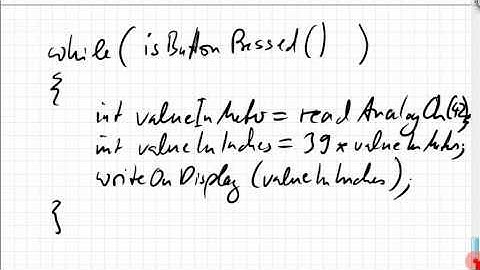 while( isButtonPressed() )
{
int valueInMeter = readAnalogCh(42);
int valueInInches = 39 * valueInMeter;
writeOnDisplay (valueInInches);
}